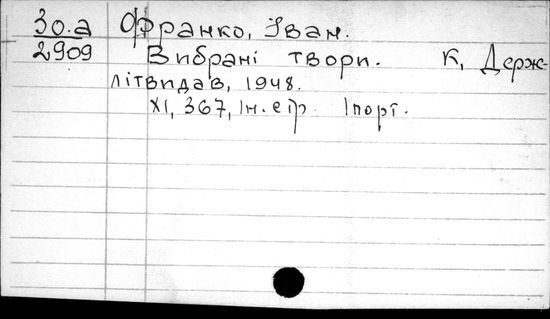 30.а Франко, Іван.
2909 Вибрані твори. К, Держ-
літвидав, 1948.
XI, 367, Ін. стр. Іпорт.